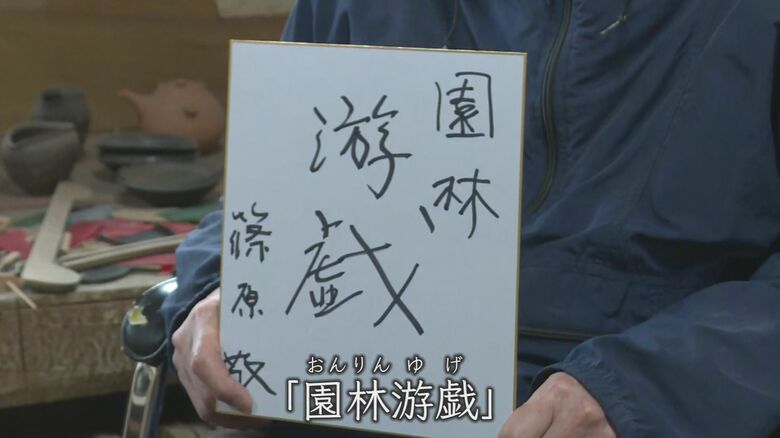 園林
游戯
篠原敬
おんりんゆげ
「園林游戯」